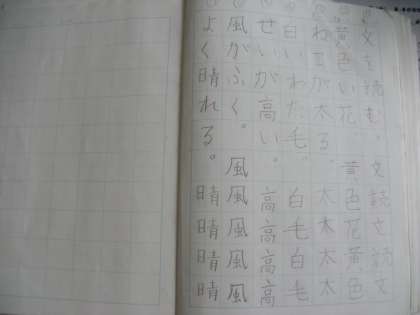 文を読む。 文読文読文
黄色い花。 黄色花黄色
が太る。 太太太太
白いわた毛。 白毛白毛
せいが高い。 高高高高
風がふく。 風風風風風
よく晴れる。 晴晴晴晴